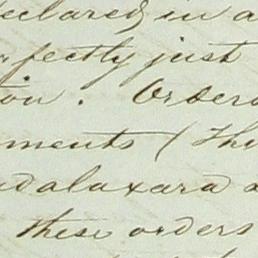 declared in a
perfectly just
ion. Orders
ments (thi
adalaxara a
these orders